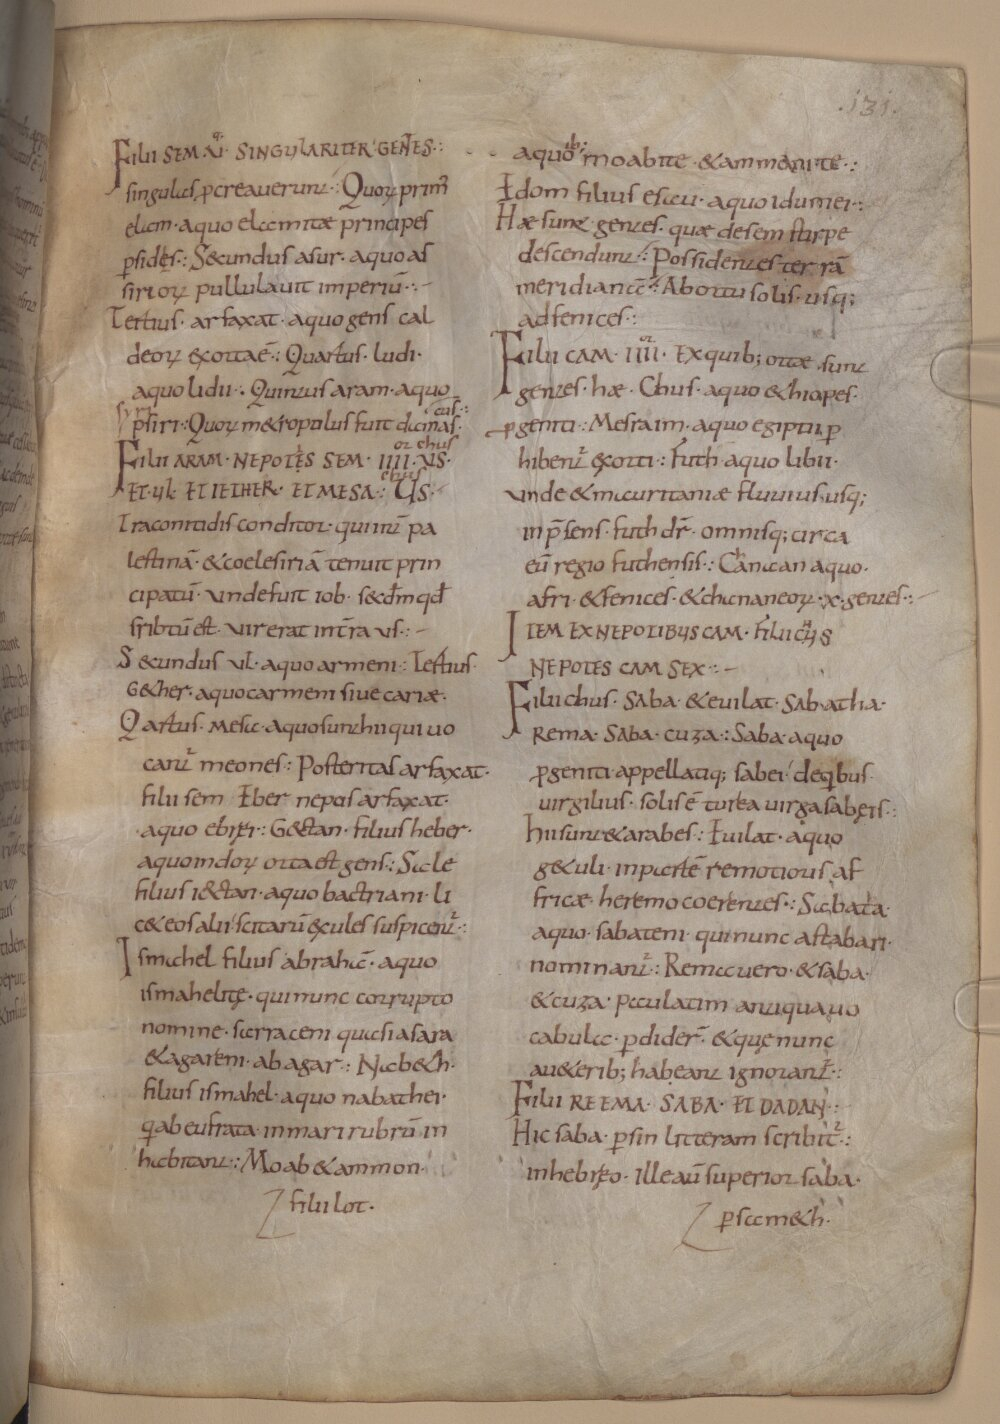 .131.
FILII SEM .VI. SINGYLARITER GENTES.
singulas pcreauerunt. Quoꝝ prim'
elam. aquo elamitæ principes
psidęs. Secundus asur. aquo as
sirioꝝ pullulauit imperiū.
Tertius. arfaxat. aquo gens cal
deoꝝ exorta ē. Quartus. ludi.
aquo lidii. Quintus aram. aquo
syri
psiri. Quoꝝ metropolus fuit
FILII ARAM. NEPOTĘS SEM. IIII. VS.
ET. yl. ET IETHER. ET MESA. US.
Traconitidis conditor. qui int̄ pa
lestinā. & coelesiriā tenuit prin
cipatū. unde fuit iob. secdm qd
sribtū est. vir erat int̄ra us.
Secundus ul. aquo armeni. Tertius.
Gether. aquo carmeni siue cariæ.
Qartus. mesa. aquo sunt hii qui uo
cant̄ meones. Posteritas arfaxat.
filii sem Eber nepos arfaxat.
aquo ebręi. Gectan. filius heber.
aquo indoꝝ orta est gens. Sale
filius iectan. aquo bactriani. li
cet eos alii scitarū exules suspicent̄.
Ismahel filius abrahā. aquo
ismahelitę. qui nunc corrupto
nomine. sarraceni quasi a sara
& agareni. ab agar. Nabeth.
filius ismahel. aquo nabathei.
q ab eufrata. in mari rubrū in
habitant. Moab & ammon.
filii lot.
aquo moabite & ammanite.
Edom filius esau. aquo idumei.
Hæ sunt gentes. quæ de sem stirpe
descendunt. Possidentes terrā
meridianā. Abortu solis. usq;
ad fenices.
FILII CAM. IIII. Ex quib; ortæ sunt
gentes. hæ. Chus. aquo & hiopes.
pgeniti. Mesraim. aquo egiptii p
hibent̄ exorti. futh. aquo libii.
unde & mauritaniæ fluuius usq;
in psens. futh dr̄. omnisq; circa
eū regio futhensis. Canaan aquo.
afri. & fenices. & chananeoꝝ. x. gentes.
ITEM EX NEPOTIBYS CAM. FILII CHYS
NEPOTES CAM SEX.
Filii chus. SABA. & euilat. SABATHA.
REMA. SABA. CUZA. SABA. aquo
pgeniti appellatiq; sabei de qibus.
virgilius. solis ē turea virga sabęis.
hii sunt & arabes. Euilat. aquo
getuli. in parte remotioris af
fricæ. heremo coerentes. Sabata.
aquo. sabateni. qui nunc astabari.
nominant̄. Rema uero. & saba.
& cuza. paulatim antiqua uo
cabula. pdider̄. & quę nunc
aueterib; habeant ignorant̄.
FILII REEMA. SABA. ET DADAN.
Hic saba. p sin litteram scribit̄.
in hebręo. Ille aū superior saba.
p samech.